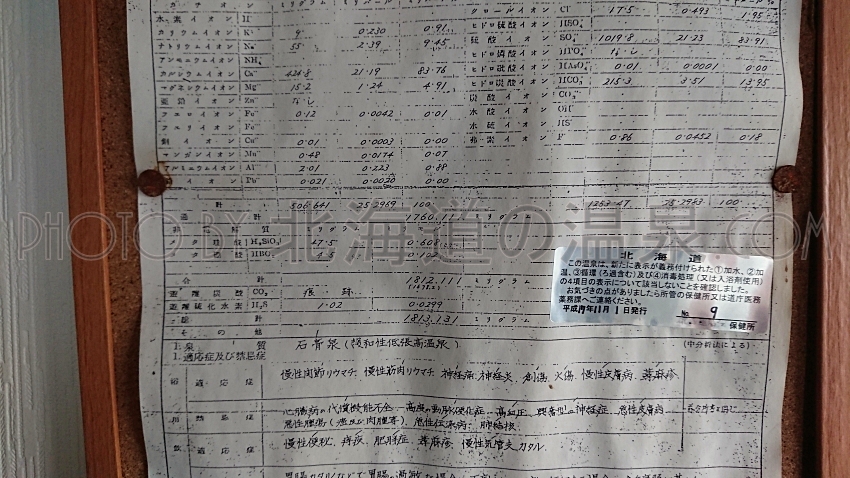 カ チ オ ン ミ リ グ ラ ム
水 素 イ オ ン H
カ リ ウ ム イ オ ン K 9. 0.230 0.91
ナ ト リ ウ ム イ オ ン Na 55. 2.39 9.45
ア ン モ ニ ウ ム イ オ ン NH₄
カ ル シ ウ ム イ オ ン Ca 424.8 21.19 83.76
マ グ ネ シ ウ ム イ オ ン Mg 15.2 1.24 4.91
亜 鉛 イ オ ン Zn なし
フ エ ロ イ オ ン Fe 0.12 0.0042 0.01
フ エ リ イ オ ン Fe
銅 イ オ ン Cu 0.01 0.0003 0.00
マ ン ガ ン イ オ ン Mn 0.48 0.0174 0.07
ア ル ミ ニ ウ ム イ オ ン Al 2.01 0.223 0.88
イ オ ン Pb 0.021 0.0020 0.00
計 506.641 25.2969 100
ク ロ ー ル イ オ ン Cl 17.5 0.493 1.95
ヒ ド ロ 硫 酸 イ オ ン HSO₄
硫 酸 イ オ ン SO₄ 1019.8 21.23 83.91
ヒ ド ロ 燐 酸 イ オ ン HPO₄ なし
ヒ ド ロ 砒 酸 イ オ ン HAsO₄ 0.01 0.0001 0.00
ヒ ド ロ 炭 酸 イ オ ン HCO₃ 215.3 3.51 13.95
炭 酸 イ オ ン CO₃
水 酸 イ オ ン OH
水 硫 イ オ ン HS
弗 素 イ オ ン F 0.86 0.0452 0.18
計 1253.47 25.2963 100
通 計 1760.111 ミ リ グ ラ ム
メ タ 珪 酸 H₂SiO₃ 47.5 0.608
メ タ 硼 酸 HBO₂ 4.5 0.102
合 計 1812.111 ミ リ グ ラ ム
遊 離 炭 酸 CO₂ 痕 跡
遊 離 硫 化 水 素 H₂S 1.02 0.0299
総 計 1813.131 ミ リ グ ラ ム
そ の 他
1.泉 質 石膏泉(緩和性低張高温泉) (中分析法による)
1.適応症及び禁忌症
適 応 症 慢性関節リウマチ 慢性筋肉リウマチ 神経痛 神経炎、創傷、火傷、慢性皮膚病、蕁麻疹
禁 忌 症 心臓病の代償機能不全、高度の動脈硬化症、高血圧、興奮型の神経症、急性皮膚病
急性腫瘍(癌及び肉腫等)、急性伝染病、肺結核
飲 適 応 症 慢性便秘、痔疾、肥胖症、蕁麻疹、慢性気管支カタル
北 海 道
この温泉は、新たに表示が義務付けられた①加水、②加
温、③循環(ろ過含む)及び④消毒処理(又は入浴剤使用)
の4項目の表示について該当しないことを確認しました。
お気づきの点がありましたら所管の保健所又は道庁医務
薬務課へご連絡ください。
平成17年11月 1日発行 No. 9 保健所
PHOTO BY 北海道の温泉.com